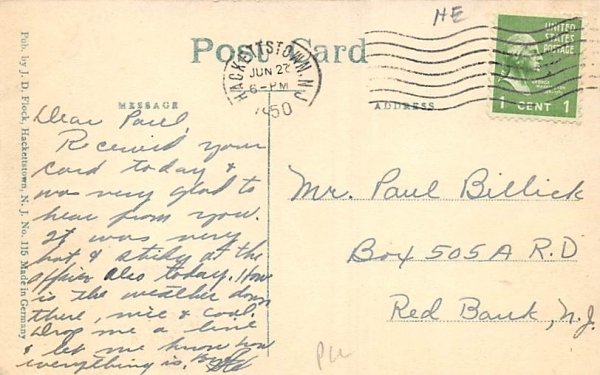 HE
Post Card
HACKETTSTOWN, N.J.
JUN 27
6-PM
1950
UNITED
STATES
POSTAGE
1 CENT 1
MESSAGE
ADDRESS
Pub. by J. D. Flock, Hackettstown, N. J. No. 115 Made in Germany
Dear Paul,
Received your
card today &
was very glad to
hear from you.
It was very
hot & sticky at the
office also today. How
is the weather down
there, nice & cool.
Drop me a line
& let me know how
everything is.
Mr. Paul Billick
Box 505A R.D
Red Bank, N.J.